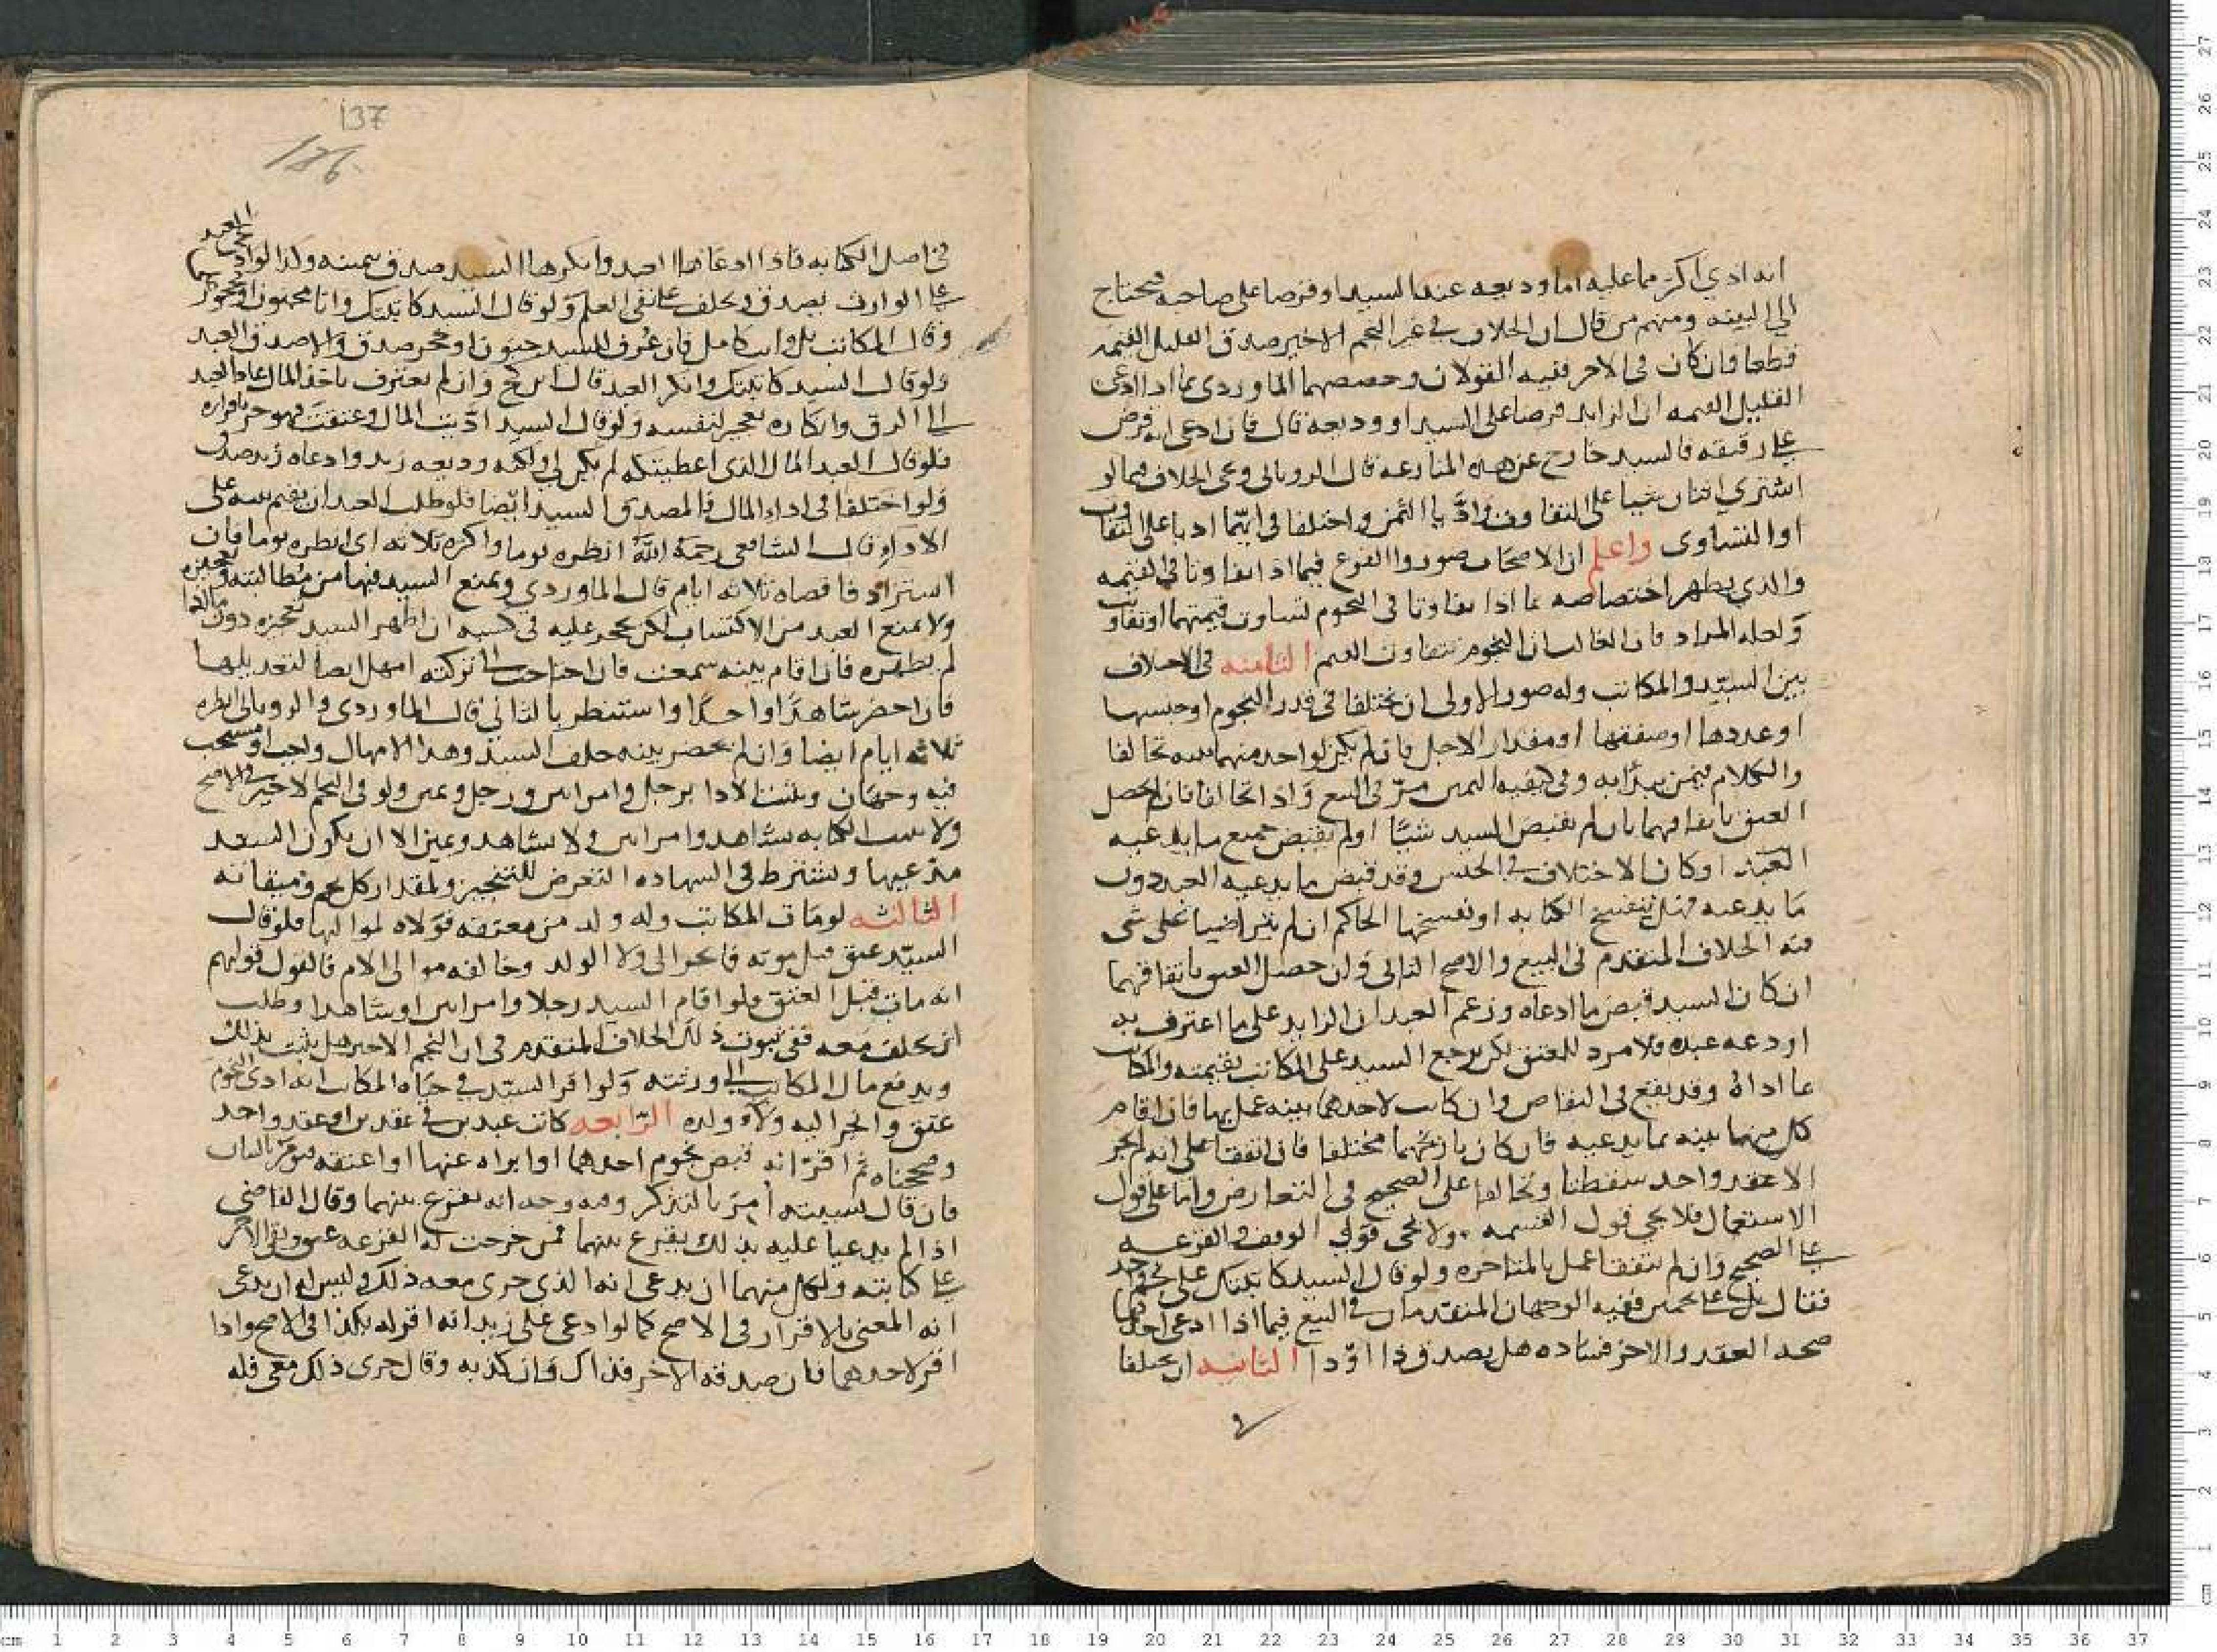 انه ادي اكثر مما عليه اما وديعه عند السيد او قرضا على صاحبه محتاج
الى البينه ومنهم من قال ان الخلاف في غير النجم الاخير صدق القليل القيمه
قطعا فان كان في الاخر ففيه القولان وخصصهما الماوردي بما اذا ادعى
القليل القيمه ان الزايد قرضا على السيد او وديعه قال فان ادعى انه قرض
على رفيقه فالسيد خارج عن هذه المنازعه قال الروياني وعى الخلاف فيما لو
اشترى اثنان شيا على التفاوت وادّيا الثمن واختلفا في ايّما اديا على التفاوت
او التساوى واعلم ان الاصحاب صوروا الفرع فيما اذا تفاوتا في القيمه
والذي يظهر اختصاصه بما اذا تفاوتا في النجوم لتساوت قيمتهما او تفاوتت
ولعله المراد فان الغالب ان النجوم تتفاوت القيم الثامنه في الاختلاف
بين السيّد والمكاتب وله صور الاولى ان يختلفا في قدر النجوم او جنسها
او عددها او صفتها او مقدار الاجل فان لم يكن لواحد منهما بينه تحالفا
والكلام فيمن يبدأ به وفي كيفيه اليمين مرّ في البيع واذا تحالفا فان لم يحصل
العتق باتفاقهما بان لم يقبض السيد شيًا او لم يقبض جميع ما يدعيه
العبد او كان الاختلاف في الجنس وقد قبض ما يدعيه العبد دون
ما يدعيه فهل تنفسخ الكتابه او يفسخها الحاكم ان لم يتراضيا على شي
فيه الخلاف المتقدم في البيع والاصح الثاني وان حصل العتق باتفاقهما
ان كان السيد قبض ما ادعاه وزعم العبد ان الزايد على ما اعترف به
اودعه عنده فلا مرد للعتق لكن يرجع السيد على المكاتب بقيمته والمكاتب
بما اداه وقد يقع في التقاص وان كانت لاحدهما بينه عمل بها فان اقام
كل منهما بينه بما يدعيه فان كان تاريخهما مختلفا فان اتفقا على انه لم يجر
الا عقد واحد سقطتا وتحالفا على الصحيح في التعارض واما على قول
الاستعمال فلا يجي قول القسمه ولا يجي قولي الوقف والقرعه
على الصحيح وان لم يتفقا عمل بالمتاخره ولو قال السيد كاتبتك على نجم واحد
فقال بل على نجمين ففيه الوجهان المتقدمان في البيع فيما اذا ادعى احدهما
صحه العقد والاخر فساده هل يصدق ذا او ذا الثانيه ان يختلفا
في
137
136
في اصل الكتابه فاذا ادعاها احد وانكرها السيد صدق بيمينه ولذا لو ادعى العبد
على الوارث يصدق ويحلف على نفى العلم ولو قال السيد كاتبتك وانا مجنون او محجور
وقال المكاتب بل وانت كامل فان عُرف للسيد جنون او حجر صدق والا صدق العبد
ولو قال السيد كاتبتك وانكر العبد قال ابن كج وان لم يعترف باخذ المال عاد العبد
الى الرق وانكاره تعجيز لنفسه ولو قال السيد ادّيت المال وعتقت فهو حر باقراره
فلو قال العبد المال الذى اعطيتكه لم يكن لي ولكنه وديعه زيد وادعاه زيد صدق
ولو اختلفا في اداء المال فالمصدق السيد ايضا فلو طلب العبد ان يقيم بينه على
الاداء قال الشافعى رحمة الله انظره يوما واكثره ثلاثه اي انظره يوما فان
استزاد فاقصاه ثلاثه ايام قال الماوردي ويمنع السيد فيها من مطالبته وتعجيزه
ولا يمنع العبد من الاكتساب لكن يحجر عليه في كسبه ان اظهر السيد تعجيزه دون ما اذا
لم يظهره فان اقام بينه سمعت فان احتاجت الى تزكيه امهل ايضا لتعديلها
فان احضر شاهدًا واحدًا واستنظر بالثاني قال الماوردى والروياني انظره
ثلاثه ايام ايضا وان لم يحضر بينه حلف السيد وهذا الامهال واجب او مستحب
فيه وجهان ويثبت الادا برجل وامراتين ورجل ويمين ولو في النجم الاخير في الاصح
ولا تثبت الكتابه بشاهد وامراتين ولا بشاهد ويمين الا ان يكون السيد
مدعيها ويشترط في الشهاده التعرض للتنجيز ولمقدار كل نجم وميقاته
الثالثه لو مات المكاتب وله ولد من معتقه فولاه لمواليها فلو قال
السيّد عتق قبل موته فانجر الى ولا الولد وخالفه موالى الام فالقول قولهم
انه مات قبل العتق ولو اقام السيد رجلا وامراتين او شاهدا وطلب
ان يحلف معه ففي ثبوت ذلك الخلاف المتقدم في ان النجم الاخير هل يثبت بذلك
ويدفع مال المكاتب الى ورثته ولو اقر السيّد في حياه المكاتب انه ادى النجوم
عتق وانجر اليه ولاء ولده الرّابعه كاتب عبدين في عقدين او عقد واحد
وصححناه ثم اقرّ انه قبض نجوم احدهما او ابراه عنها او اعتقه
فان قال نسيته اُمِرَ بالتذكر وفيه وجه انه يقرع بينهما وقال القاضي
اذا لم يدعيا عليه بذلك يقرع بينهما فمن خرجت له القرعه عتق وبقى الاخر
على كتابته ولكل منهما ان يدعى انه الذى جرى معه ذلك وليس له ان يدعى
انه المعنى بالاقرار في الاصح كما لو ادعى على زيد انه اقر له بكذا في الاصح واذا
اقر لاحدهما فان صدقه الاخر فذاك وان كذبه وقال جرى ذلك معي فله